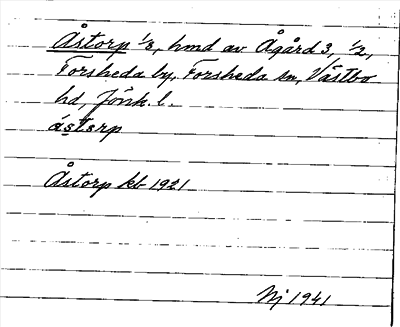 Åstorp 1/8, hmd av Ågård 3, 1/2,
Forsheda by, Forsheda sn, Västbo
hd, Jönk. l.
åstɔrp
Åstorp kb 1921
Nj 1941